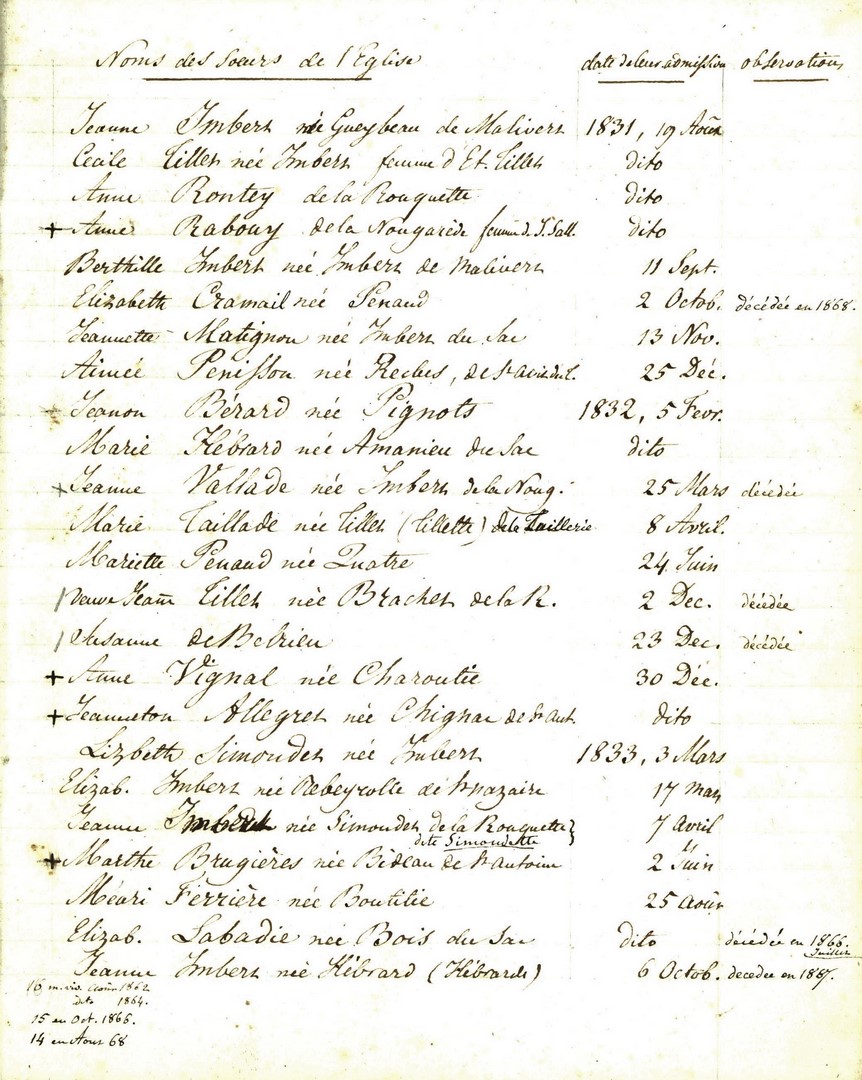 Noms des Sœurs de l'Eglise date de leur admission observations
Jeanne Imbert née Gueybeau de Malivert 1831, 19 Août
Cécile Tillet née Imbert femme d'Et. Tillet dito
Anne Rontey de la Rouquette dito
+ Anne Rabouy de la Nougarède femme d. J. Sall. dito
Berthille Imbert née Imbert de Malivert 11 Sept.
Elizabeth Cramail née Penaud 2 Octob. décédée en 1868.
Jeannette Matignon née Imbert du Sac 13 Nov.
Aimée Penisson née Reclus, de St 25 Déc.
+ Jeanon Bérard née Pignots 1832, 5 Fevr.
Marie Hébrard née Amanieu du Sac dito
+ Jeanne Vallade née Imbert de la Noug. 25 Mars décédée
Marie Taillade née Tillet (Tillette) de la Taillerie 8 Avril.
Mariette Penaud née Quatre 24 Juin
/ veuve Jeanne Tillet née Brachet de la R. 2 Dec. décédée
/ Susanne de Belrieu 23 Dec. décédée
+ Anne Vignal née Charoutie 30 Déc.
+ Jeanneton Allegret née Chignac de St Ant. dito
Lizbeth Simoudet née Imbert 1833, 3 Mars
Elizab. Imbert née Rebeyrolle de St Nazaire 17 Mars
Jeanne Imbert née Simoudet de la Rouquette} 7 Avril
dite Simoudette
+ Marthe Brugières née Bideau de St Antoine 2 Juin
Méari Ferrière née Boutitie 25 Août
Elizab. Labadie née Bois du Sac dito décédée en 1866.
Juillet
Jeanne Imbert née Hébrard (Hébrarde) 6 Octob. décédée en 1867.
16 m. viv. Août 1862
dito 1864.
15 en Oct. 1866.
14 en Aout 68